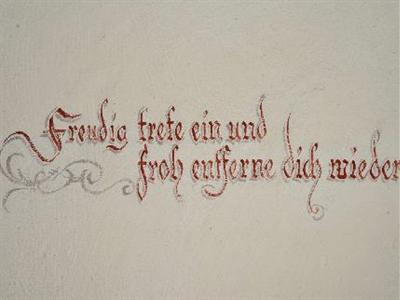 Freudig trete ein und
froh entferne dich wieder